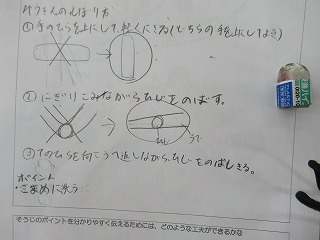 ぞうきんのしぼり方
①手のひらを上にして、軽くにぎる(どちらの手を上にしてもよい)
②にぎりこみながらひじをのばす。
ひじ
③手のひらを向こうへ返しながら、ひじをのばしきる。
ポイント
・こまめに洗う
そうじのポイントを分かりやすく伝えるためには、どのような工夫ができるかな